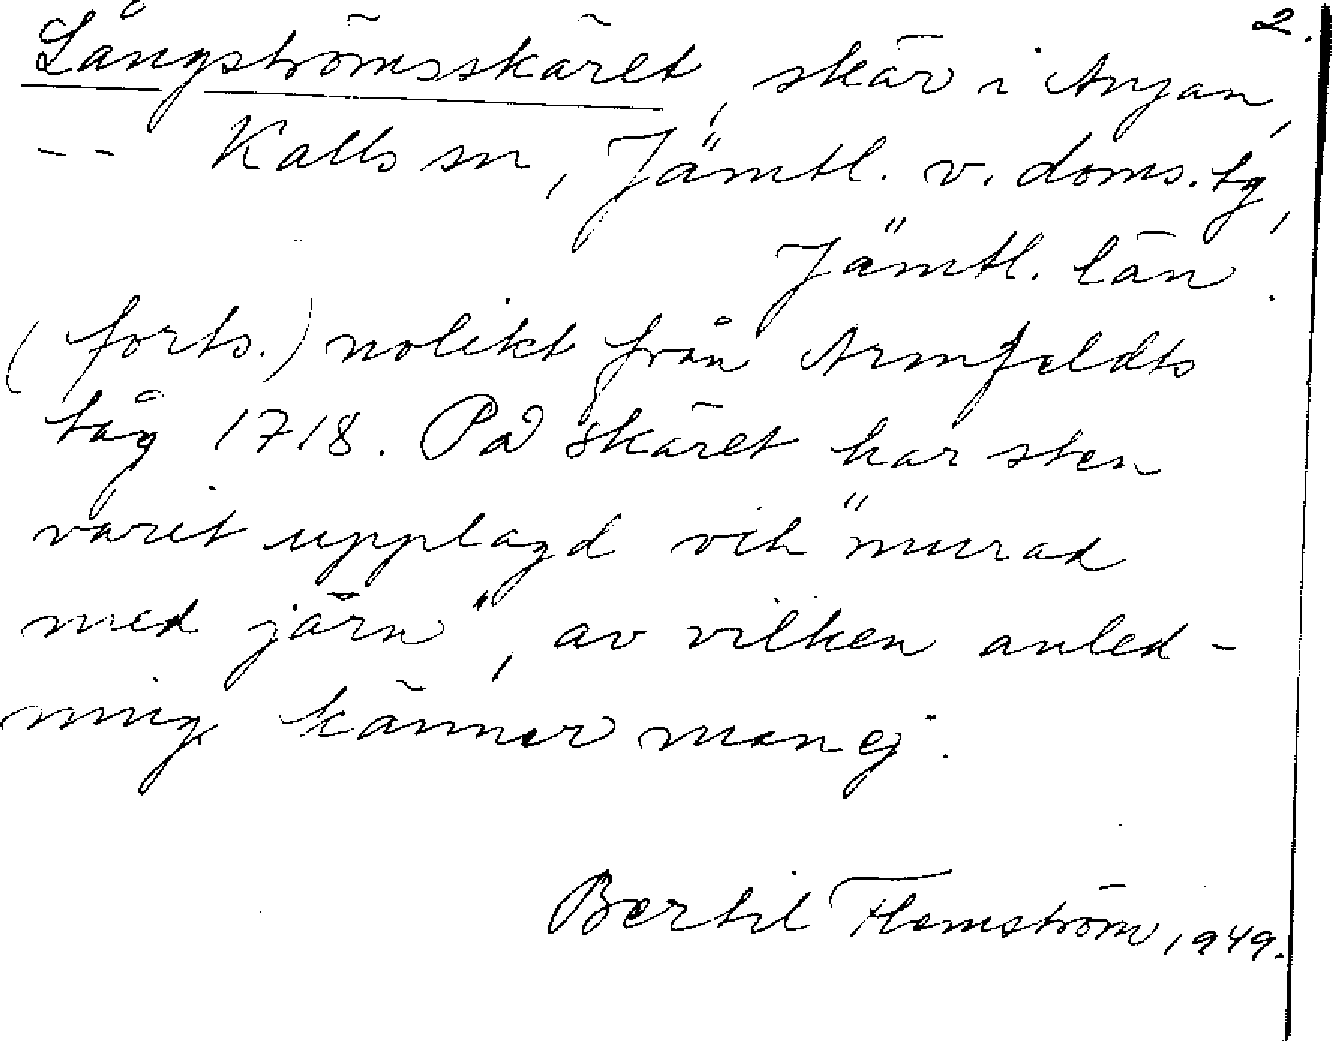 2.
Långströmsskäret, skär i Anjan,
-- Kalls sn, Jämtl. v. doms. tg,
Jämtl. län.
(forts.) nolikt från Armfeldts
tåg 1718. På skäret har sten
varit upplagd och "murad
med järn", av vilken anled-
ning känner man ej.
Bertil Flemström, 1949.